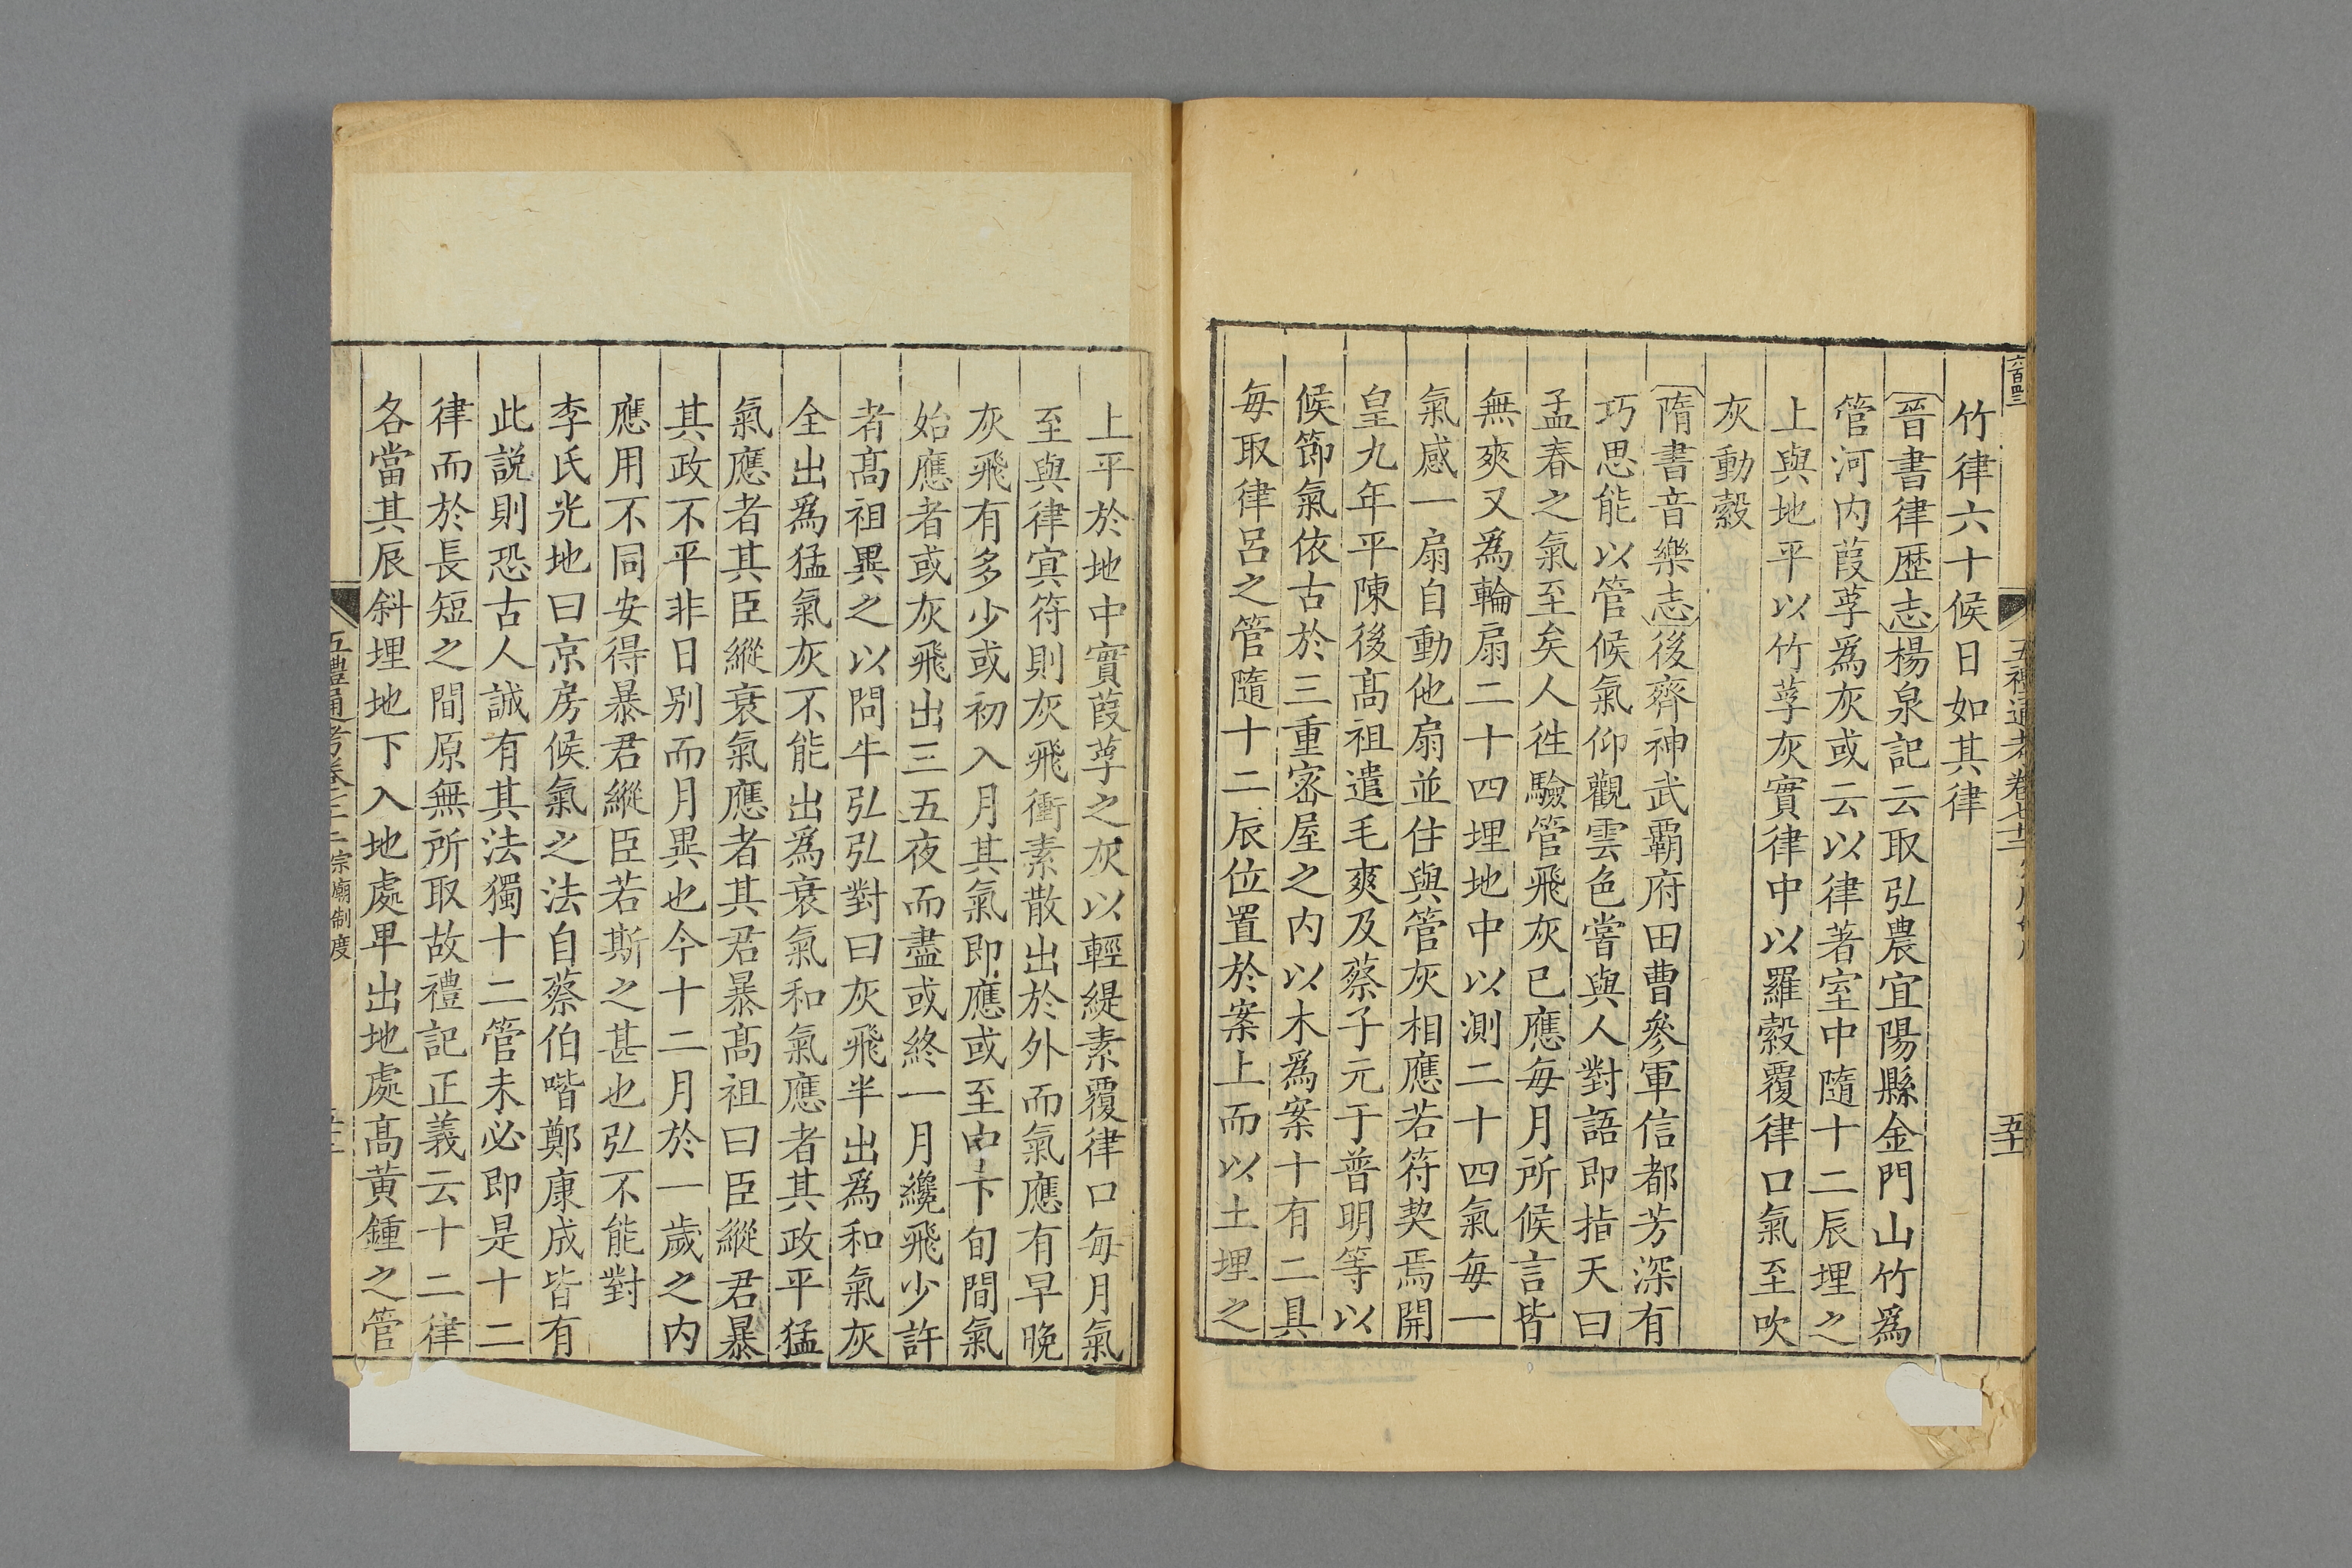 六百四三
五禮通考卷七十三
五十一
竹律六十候日如其律
晉書律歷志楊泉記云取弘農宜陽縣金門山竹爲
管河内葭莩爲灰或云以律著室中隨十二辰埋之
上與地平以竹莩灰實律中以羅縠覆律口氣至吹
灰動縠
隋書音樂志後齊神武霸府田曹參軍信都芳深有
巧思能以管候氣仰觀雲色嘗與人對語即指天曰
孟春之氣至矣人徃驗管飛灰已應每月所候言皆
無爽又爲輪扇二十四埋地中以測二十四氣每一
氣感一扇自動他扇並住與管灰相應若符契焉開
皇九年平陳後髙祖遣毛爽及蔡子元于普明等以
候節氣依古於三重宻屋之内以木爲案十有二具
每取律呂之管隨十二辰位置於案上而以土埋之
上平於地中實葭莩之灰以輕緹素覆律口每月氣
至與律㝠符則灰飛衝素散出於外而氣應有早晚
灰飛有多少或初入月其氣即應或至中下旬間氣
始應者或灰飛出三五夜而盡或終一月纔飛少許
者髙祖異之以問牛弘弘對曰灰飛半出爲和氣灰
全出爲猛氣灰不能出爲衰氣和氣應者其政平猛
氣應者其臣縱衰氣應者其君暴髙祖曰臣縱君暴
其政不平非日别而月異也今十二月於一歲之内
應用不同安得暴君縱臣若斯之甚也弘不能對
李氏光地曰京房候氣之法自蔡伯喈鄭康成皆有
此説則恐古人誠有其法獨十二管未必即是十二
律而於長短之間原無所取故禮記正義云十二律
各當其辰斜埋地下入地處卑出地處髙黃鍾之管
五禮通考卷 宗廟制度